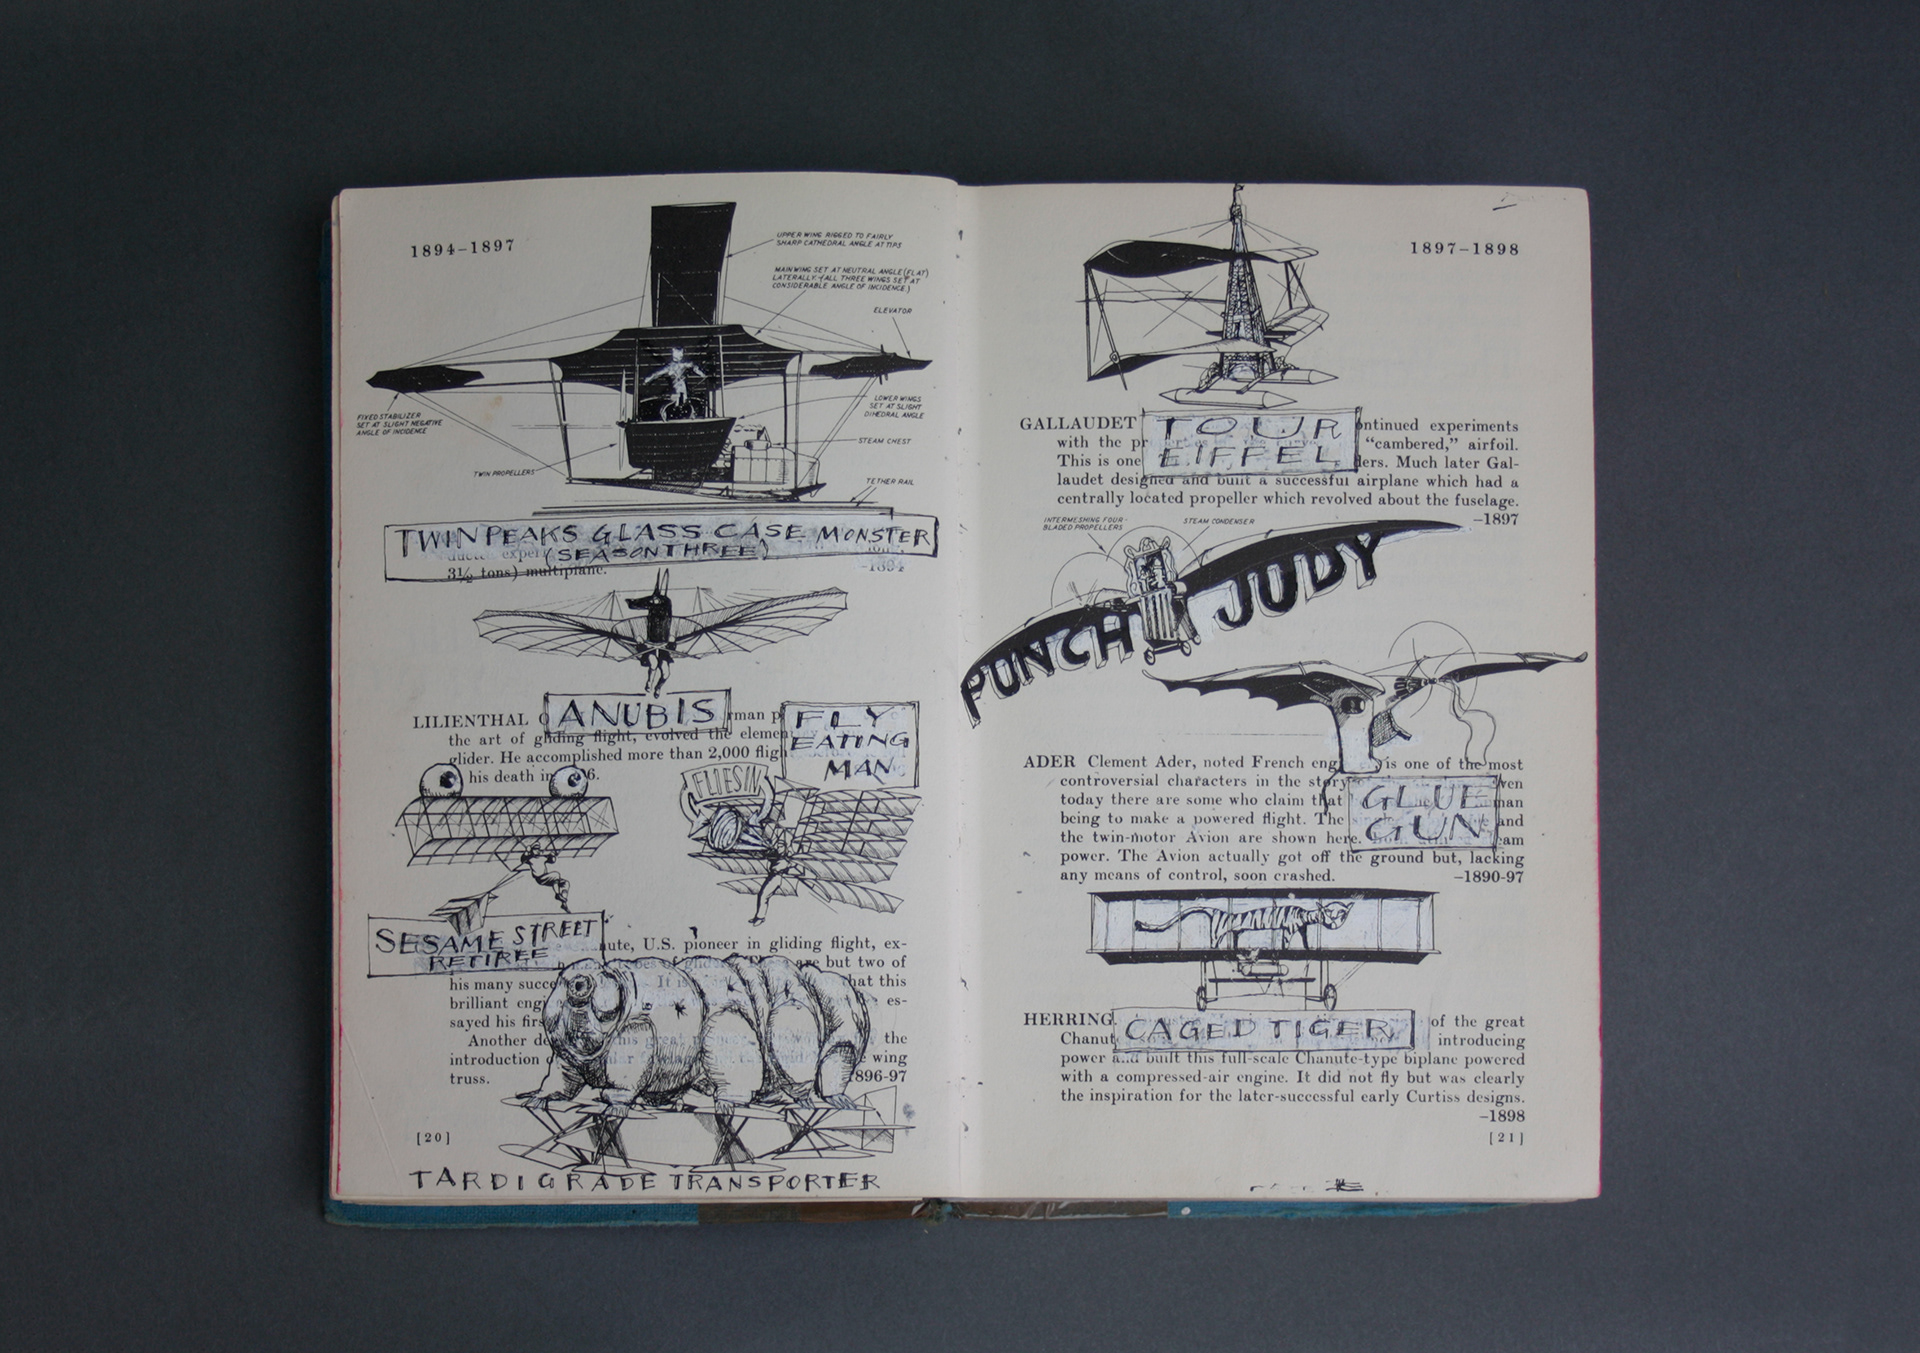 1894–1897
UPPER WING RIGGED TO FAIRLY
SHARP CATHEDRAL ANGLE AT TIPS
MAIN WING SET AT NEUTRAL ANGLE (FLAT)
LATERALLY. (ALL THREE WINGS SET AT
CONSIDERABLE ANGLE OF INCIDENCE.)
ELEVATOR
FIXED STABILIZER
SET AT SLIGHT NEGATIVE
ANGLE OF INCIDENCE
LOWER WINGS
SET AT SLIGHT
DIHEDRAL ANGLE
STEAM CHEST
TWIN PROPELLERS
TETHER RAIL
TWIN PEAKS GLASS CASE MONSTER
(SEASON THREE)
3½ tons) multiplane.
–1894
ANUBIS
LILIENTHAL
the art of gliding flight, evolved the
glider. He accomplished more than 2,000
his death in
FLY
EATING
MAN
FLIES IN
SESAME STREET
RETIREE
U.S. pioneer in gliding flight, ex-
are but two of
his many It that this
brilliant es-
sayed his
Another the
introduction wing
truss. 1896-97
[20]
TARDIGRADE TRANSPORTER
1897–1898
GALLAUDET ontinued experiments
with the “cambered,” airfoil.
This is one Much later Gal-
laudet designed and built a successful airplane which had a
centrally located propeller which revolved about the fuselage.
–1897
TOUR
EIFFEL
INTERMESHING FOUR-
BLADED PROPELLERS
STEAM CONDENSER
PUNCH JUDY
ADER Clement Ader, noted French is one of the most
controversial characters in the story
today there are some who claim that man
being to make a powered flight. The and
the twin-motor Avion are shown here.
power. The Avion actually got off the ground but, lacking
any means of control, soon crashed. –1890-97
GLUE
GUN
HERRING of the great
introducing
power and built this full-scale Chanute-type biplane powered
with a compressed-air engine. It did not fly but was clearly
the inspiration for the later-successful early Curtiss designs.
–1898
CAGED TIGER
[21]